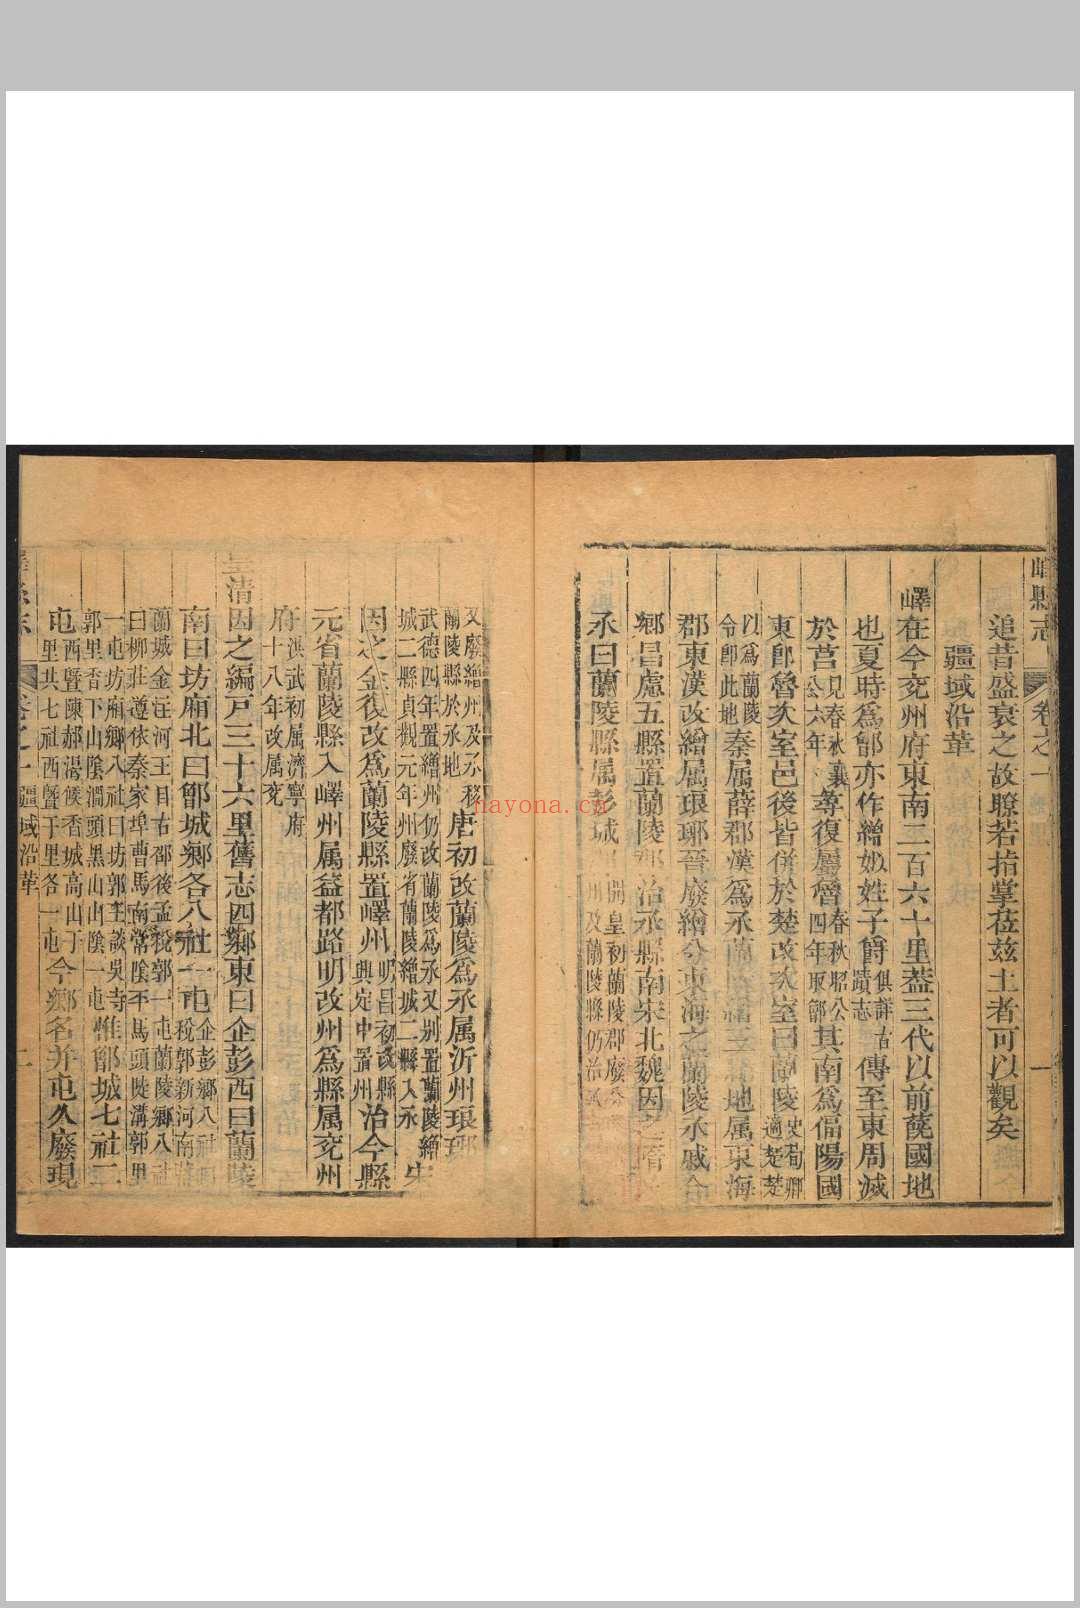 嶧縣志 卷之一 一
追昔盛衰之故瞭若指掌莅兹土者可以觀矣
疆域沿革
嶧在今兗州府東南二百六十里葢三代以前莬國地
也夏時爲鄫亦作繒姒姓子爵俱詳古蹟志傳至東周滅
於莒見春秋襄公六年尋復屬魯春秋昭公四年取鄫其南爲偪陽國
東即魯次室邑後皆併於楚改次室曰蘭陵史荀卿適楚楚
以爲蘭陵令即此地秦屬薛郡漢爲氶蘭
地属東海
郡東漢改繒属琅琊晉廢繒分東海之蘭陵氶戚合
鄉昌慮五縣置蘭陵郡治氶縣南宋北魏因之隋
氶曰蘭陵縣属彭城開皇初蘭陵郡廢
州及蘭陵縣仍治
又廢繒州及氶移蘭陵縣於氶地唐初改蘭陵爲氶属沂州琅琊
武德四年置繒州仍改蘭陵爲氶又别置蘭陵繒城二縣貞觀元年州廢省蘭陵繒城二縣入氶宋
因之金復改爲蘭陵縣置嶧州明昌初改縣興定中置州治今縣
元省蘭陵縣入嶧州属益都路明改州爲縣属兗州
府洪武初属濟寧府十八年改属兗
清因之編戸三十六里舊志四鄉東曰企彭西曰蘭陵
南曰坊廂北曰鄫城鄉各八社一屯企彭鄉八社曰
稅郭新河南
蘭城金注河王目右邵後孟稅郭一屯蘭陵鄉八社
曰柳莊遵依秦家埠曹馬南常陰平馬頭陡溝郭里
一屯坊廂鄉八社曰坊郭主談吳寺
郭里杏下山陰澗頭黒山山陰一屯惟鄫城七社二
屯西暨陳郝湯候杏城高山于里共七社西暨于里各一屯今鄉名并屯久廢現
卷之一 疆域沿革 二
nayona.cn